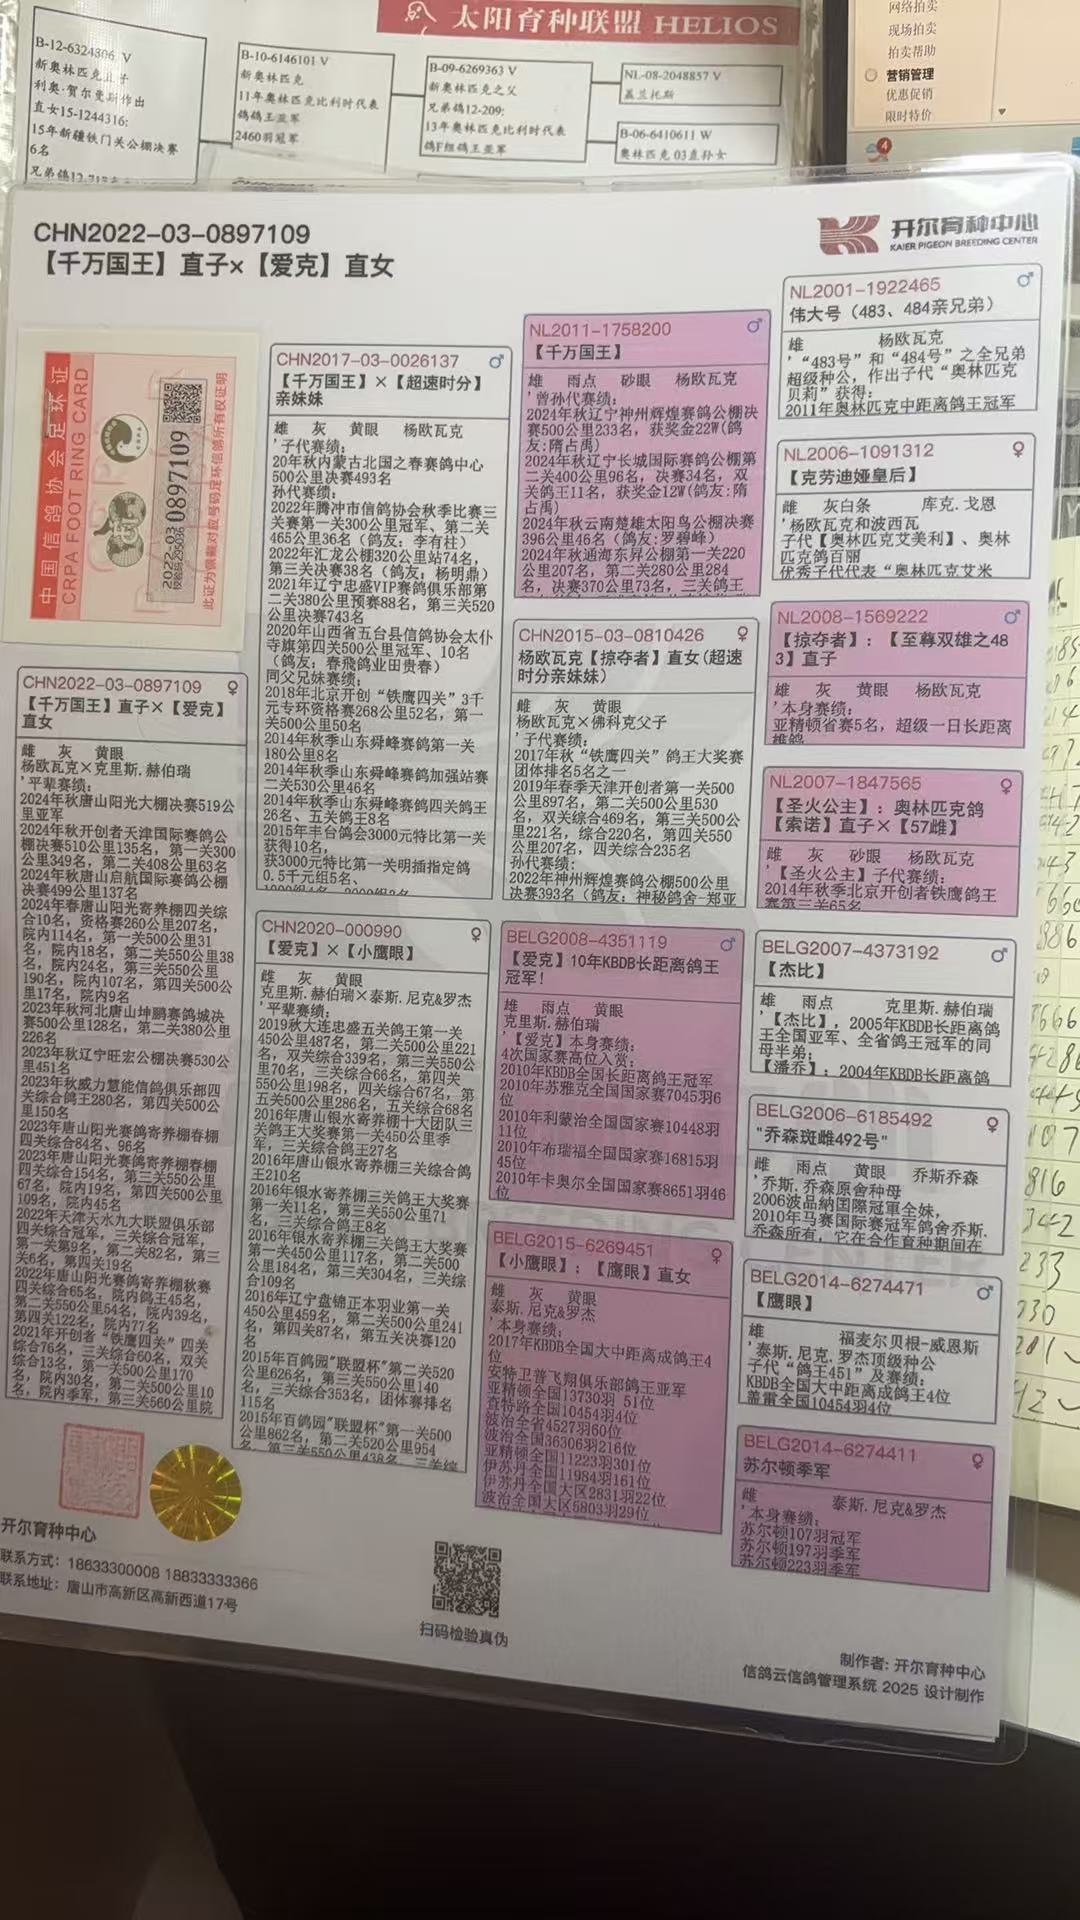 太阳育种联盟 HELIOS
B-12-6324806 V
利奥·贺尔曼斯作出
直女15-1244316:
15年新疆铁门关公棚决赛
6名
B-10-6146101 V
新奥林匹克
11年奥林匹克比利时代表
鸽鸽王亚军
2460羽冠军
B-09-6269363 V
新奥林匹克之父
兄弟鸽12-209:
13年奥林匹克比利时代表
鸽F组鸽王亚军
NL-08-2048857 V
盖兰托斯
B-06-6410611 W
奥林匹克 03直孙女
网络拍卖
现场拍卖
拍卖帮助
营销管理
优惠促销
限时特价
4
CHN2022-03-0897109
【千万国王】直子×【爱克】直女
开尔育种中心
KAIER PIGEON BREEDING CENTER
中国信鸽协会足环证
CRPA FOOT RING CARD
2022-03 0897109
此证为佩戴对应号码足环信鸽所有权证明
CHN2022-03-0897109 ♀
【千万国王】直子×【爱克】
直女
雌 灰 黄眼
杨欧瓦克×克里斯.赫伯瑞
'平辈赛绩:
2024年秋唐山阳光大棚决赛519公
里亚军
2024年秋开创者天津国际赛鸽公
棚决赛510公里135名, 第一关300
公里349名, 第二关408公里63名
2024年秋唐山启航国际赛鸽公棚
决赛499公里137名
2024年春唐山阳光寄养棚四关综
合10名, 资格赛260公里207名,
院内114名, 第一关500公里31
名, 院内18名, 第二关550公里38
名, 院内24名, 第三关550公里
190名, 院内107名, 第四关500公
里17名, 院内9名
2023年秋河北唐山坤鹏赛鸽城决
赛500公里128名, 第二关380公里
226名
2023年秋辽宁旺宏公棚决赛530公
里451名
2023年秋威力慧能信鸽俱乐部四
关综合鸽王280名, 第四关500公
里150名
2023年唐山阳光赛鸽寄养棚春棚
四关综合84名、96名
2023年唐山阳光赛鸽寄养棚春棚
四关综合154名, 第三关550公里
67名, 院内19名, 第四关500公里
109名, 院内45名
2022年天津天水九大联盟俱乐部
四关综合冠军, 三关综合冠军,
第一关第9名, 第二关82名, 第三
关6名, 第四关19名
2022年唐山阳光赛鸽寄养棚秋赛
四关综合65名, 院内鸽王45名,
第二关550公里54名, 院内39名,
第四关122名, 院内77名
2021年开创者“铁鹰四关”四关
综合76名, 三关综合60名, 双关
综合13名, 第一关500公里170
名, 院内30名, 第二关500公里10
名, 院内季军, 第三关560公里院
CHN2017-03-0026137 ♂
【千万国王】×【超速时分】
亲妹妹
雄 灰 黄眼 杨欧瓦克
'子代赛绩:
20年秋内蒙古北国之春赛鸽中心
500公里决赛493名
孙代赛绩:
2022年腾冲市信鸽协会秋季比赛三
关赛第一关300公里冠军、第二关
465公里36名（鸽友: 李有柱）
2022年汇龙公棚320公里站74名,
第三关决赛38名（鸽友: 杨明鼎）
2021年辽宁忠盛VIP赛鸽俱乐部第
二关380公里预赛88名, 第三关520
公里决赛743名
2020年山西省五台县信鸽协会太仆
寺旗第四关500公里冠军、10名
（鸽友: 春飛鸽业田贵春）
同父兄妹赛绩:
2018年北京开创“铁鹰四关”3千
元专环资格赛268公里52名, 第一
关500公里50名
2014年秋季山东舜峰赛鸽第一关
180公里8名
2014年秋季山东舜峰赛鸽加强站赛
二关530公里46名
2014年秋季山东舜峰赛鸽四关鸽王
26名、五关鸽王8名
2015年丰台鸽会3000元特比第一关
获得10名,
获3000元特比第一关明插指定鸽
0.5千元组5名、
CHN2020-000990 ♀
【爱克】×【小鹰眼】
雌 灰 黄眼
克里斯.赫伯瑞×泰斯.尼克&罗杰
'平辈赛绩:
2019秋大连忠盛五关鸽王第一关
450公里487名, 第二关500公里221
名, 双关综合339名, 第三关550公
里70名, 三关综合66名, 第四关
550公里198名, 四关综合67名, 第
五关500公里286名, 五关综合68名
2016年唐山银水寄养棚十大团队三
关鸽王大奖赛第一关450公里季
军, 三关综合鸽王27名
2016年唐山银水寄养棚三关综合鸽
王210名
2016年银水寄养棚三关鸽王大奖赛
第一关11名, 第三关550公里71
名, 三关综合鸽王8名
2016年银水寄养棚三关鸽王大奖赛
第一关450公里117名, 第二关500
公里184名, 第三关304名, 三关综
合109名
2016年辽宁盘锦正本羽业第一关
450公里459名, 第二关500公里241
名, 第四关87名, 第五关决赛120
名
2015年百鸽园"联盟杯"第二关520
公里626名, 第三关550公里140
名, 三关综合353名, 团体赛排名
115名
2015年百鸽园"联盟杯"第一关500
公里862名, 第二关520公里954
名, 第三关550公里438名, 三关综
NL2011-1758200 ♂
【千万国王】
雄 雨点 砂眼 杨欧瓦克
'曾孙代赛绩:
2024年秋辽宁神州辉煌赛鸽公棚决
赛500公里233名, 获奖金22W(鸽
友:隋占禹)
2024年秋辽宁长城国际赛鸽公棚第
二关400公里96名, 决赛34名, 双
关鸽王11名, 获奖金12W(鸽友:隋
占禹)
2024年秋云南楚雄太阳鸟公棚决赛
396公里46名（鸽友:罗碧峰）
2024年秋通海东昇公棚第一关220
公里207名, 第二关280公里284
名, 决赛370公里73名, 三关鸽王
CHN2015-03-0810426 ♀
杨欧瓦克【掠夺者】直女(超速
时分亲妹妹）
雌 灰 黄眼
杨欧瓦克×佛科克父子
'子代赛绩:
2017年秋“铁鹰四关”鸽王大奖赛
团体排名5名之一
2019年春季天津开创者第一关500
公里897名, 第二关500公里530
名, 双关综合469名, 第三关500公
里221名, 综合220名, 第四关550
公里207名, 四关综合235名
孙代赛绩:
2022年神州辉煌赛鸽公棚500公里
决赛393名（鸽友: 神秘鸽舍-郑亚
BELG2008-4351119 ♂
【爱克】10年KBDB长距离鸽王
冠军!
雄 雨点 黄眼
克里斯.赫伯瑞
'【爱克】本身赛绩:
4次国家赛高位入赏:
2010年KBDB全国长距离鸽王冠军
2010年苏雅克全国国家赛7045羽6
位
2010年利蒙治全国国家赛10448羽
11位
2010年布瑞福全国国家赛16815羽
45位
2010年卡奥尔全国国家赛8651羽46
位
BELG2015-6269451 ♀
【小鹰眼】; 【鹰眼】直女
雌 灰 黄眼
泰斯.尼克&罗杰
'本身赛绩:
2017年KBDB全国大中距离成鸽王4
位
安特卫普飞翔俱乐部鸽王亚军
亚精顿全国13730羽 51位
查特路全国10454羽4位
波治全省4527羽60位
波治全国36306羽216位
亚精顿全国11223羽301位
伊苏丹全国11984羽161位
伊苏丹全国大区2831羽22位
波治全国大区5803羽29位
NL2001-1922465 ♂
伟大号（483、484亲兄弟）
雄 杨欧瓦克
'“483号”和“484号”之全兄弟
超级种公, 作出子代“奥林匹克
贝莉”获得:
2011年奥林匹克中距离鸽王冠军
NL2006-1091312 ♀
【克劳迪娅皇后】
雌 灰白条 库克.戈恩
'杨欧瓦克和波西瓦
子代【奥林匹克艾美利】、奥林
匹克鸽百丽
优秀子代代表“奥林匹克艾米
NL2008-1569222 ♂
【掠夺者】: 【至尊双雄之48
3】直子
雄 灰 黄眼 杨欧瓦克
'本身赛绩:
亚精顿省赛5名, 超级一日长距离
雄鸽
NL2007-1847565 ♀
【圣火公主】: 奥林匹克鸽
【索诺】直子×【57雌】
雌 灰 砂眼 杨欧瓦克
'【圣火公主】子代赛绩:
2014年秋季北京开创者铁鹰鸽王
赛第三关65名
BELG2007-4373192 ♂
【杰比】
雄 雨点 克里斯.赫伯瑞
'【杰比】, 2005年KBDB长距离鸽
王全国亚军、全省鸽王冠军的同
母半弟;
【潘乔】: 2004年KBDB长距离鸽
BELG2006-6185492 ♀
"乔森斑雌492号"
雌 雨点 黄眼 乔斯乔森
'乔斯.乔森原舍种母
2006波品納国際冠軍全妹,
2010年马赛国际赛冠军鸽舍乔斯.
乔森所有, 它在合作育种期间在
BELG2014-6274471 ♂
【鹰眼】
雄 福麦尔贝根-威恩斯
'泰斯.尼克.罗杰顶级种公
子代“鸽王451”及赛绩:
KBDB全国大中距离成鸽王4位
盖雷全国10454羽4位
BELG2014-6274411 ♀
苏尔顿季军
雌 泰斯.尼克&罗杰
'本身赛绩:
苏尔顿107羽冠军
苏尔顿197羽季军
苏尔顿223羽季军
开尔育种中心
联系方式: 18633300008 18833333366
联系地址: 唐山市高新区高新西道17号
扫码检验真伪
制作者: 开尔育种中心
信鸽云信鸽管理系统 2025 设计制作